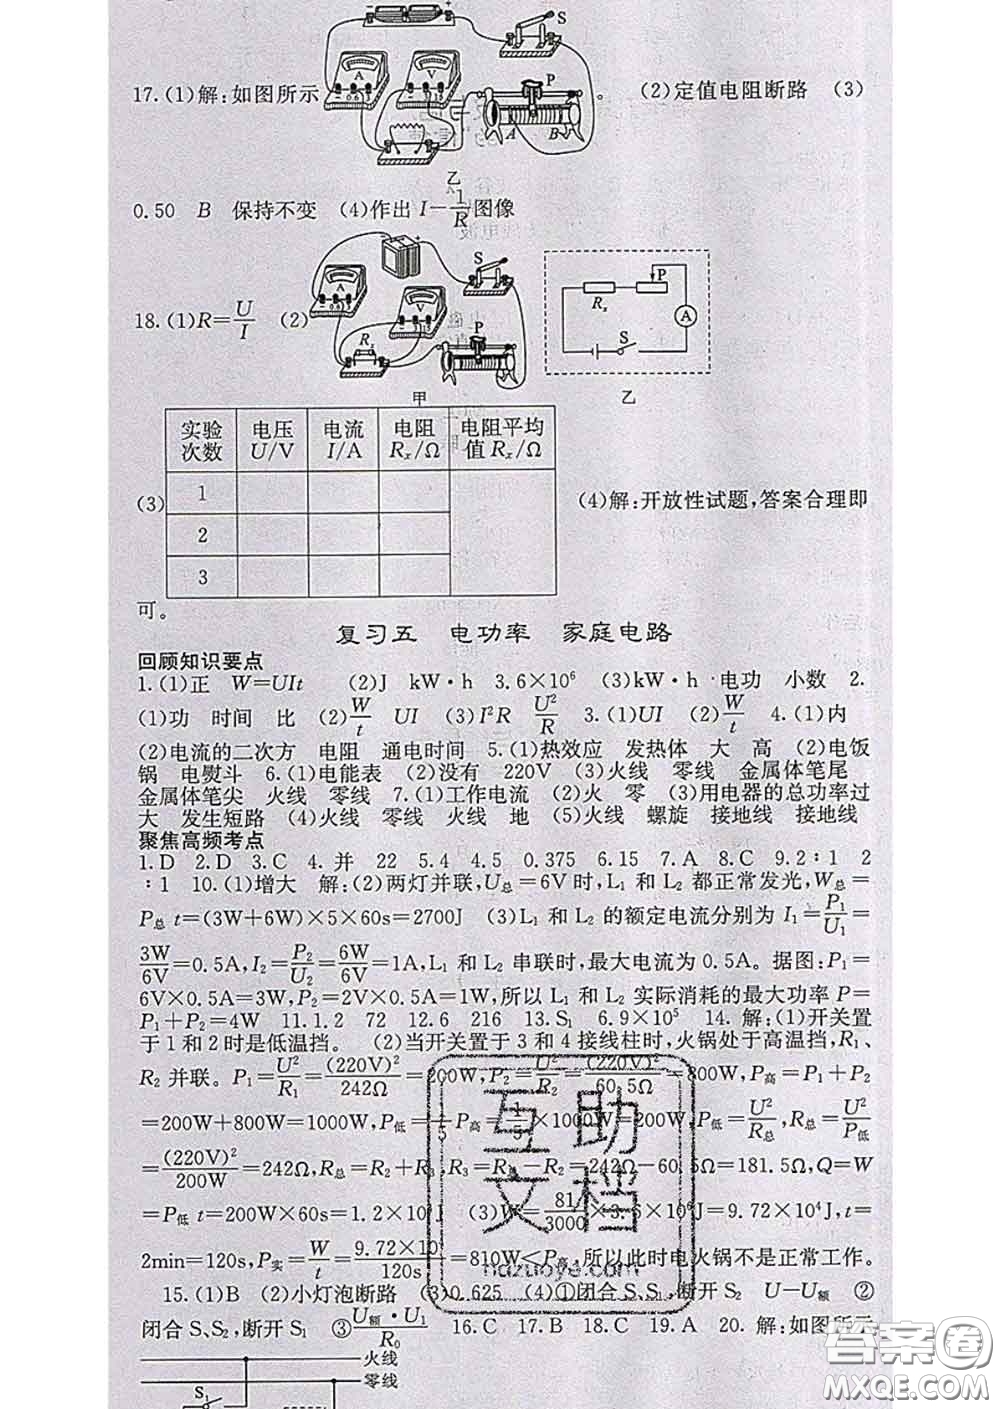 17.(1)解:如图所示 。 (2)定值电阻断路 (3)
乙
0.50 B 保持不变 (4)作出 I－1/R图像
18.(1)R=U/I (2)
甲 乙
实验次数 电压U/V 电流I/A 电阻Rx/Ω 电阻平均值Rx/Ω
1
2
3
(3) (4)解:开放性试题,答案合理即
可。
复习五 电功率 家庭电路
回顾知识要点
1.(1)正 W=UIt (2)J kW·h 3.6×10⁶ (3)kW·h 电功 小数 2.
(1)功 时间 比 (2)W/t UI (3)I²R U²/R 3.(1)UI (2)W/t 4.(1)内
(2)电流的二次方 电阻 通电时间 5.(1)热效应 发热体 大 高 (2)电饭
锅 电熨斗 6.(1)电能表 (2)没有 220V (3)火线 零线 金属体笔尾
金属体笔尖 火线 零线 7.(1)工作电流 (2)火 零 (3)用电器的总功率过
大 发生短路 (4)火线 零线 火线 地 (5)火线 螺旋 接地线 接地线
聚焦高频考点
1.D 2.D 3.C 4.并 22 5.4 4.5 0.375 6.15 7.A 8.C 9.2∶1 2
∶1 10.(1)增大 解:(2)两灯并联,U总=6V时,L₁ 和 L₂ 都正常发光,W总
=P总 t=(3W+6W)×5×60s=2700J (3)L₁ 和 L₂ 的额定电流分别为 I₁=P₁/U₁=
3W/6V=0.5A,I₂=P₂/U₂=6W/6V=1A,L₁ 和 L₂ 串联时,最大电流为 0.5A。据图:P₁=
6V×0.5A=3W,P₂=2V×0.5A=1W,所以 L₁ 和 L₂ 实际消耗的最大功率 P=
P₁+P₂=4W 11.1.2 72 12.6 216 13.S₁ 6.9×10⁵ 14.解:(1)开关置
于 1 和 2 时是低温挡。 (2)当开关置于 3 和 4 接线柱时,火锅处于高温挡,R₁、
R₂ 并联。P₁=U²/R₁=(220V)²/242Ω=200W,P₂=U²/R₂=(220V)²/60.5Ω=800W,P高=P₁+P₂
=200W+800W=1000W,P低=1/5P高=1/5×1000W=200W,P低=U²/R总,R总=U²/P低
=(220V)²/200W=242Ω,R总=R₂+R₃,R₃=R总－R₂=242Ω－60.5Ω=181.5Ω,Q=W
=P低 t=200W×60s=1.2×10⁴J (3)W=81/3000×3.6×10⁶J=9.72×10⁴J,t=
2min=120s,P实=W/t=9.72×10⁴/120s=810W<P高,所以此时电火锅不是正常工作。
15.(1)B (2)小灯泡断路 (3)0.625 (4)①闭合 S、S₁,断开 S₂ U－U额 ②
闭合 S、S₂,断开 S₁ ③U额·U₁/R₀ 16.C 17.B 18.C 19.A 20.解:如图所示
火线
零线
S₁
互助
文档
hazuoye.com
答案圈
MXQE.COM